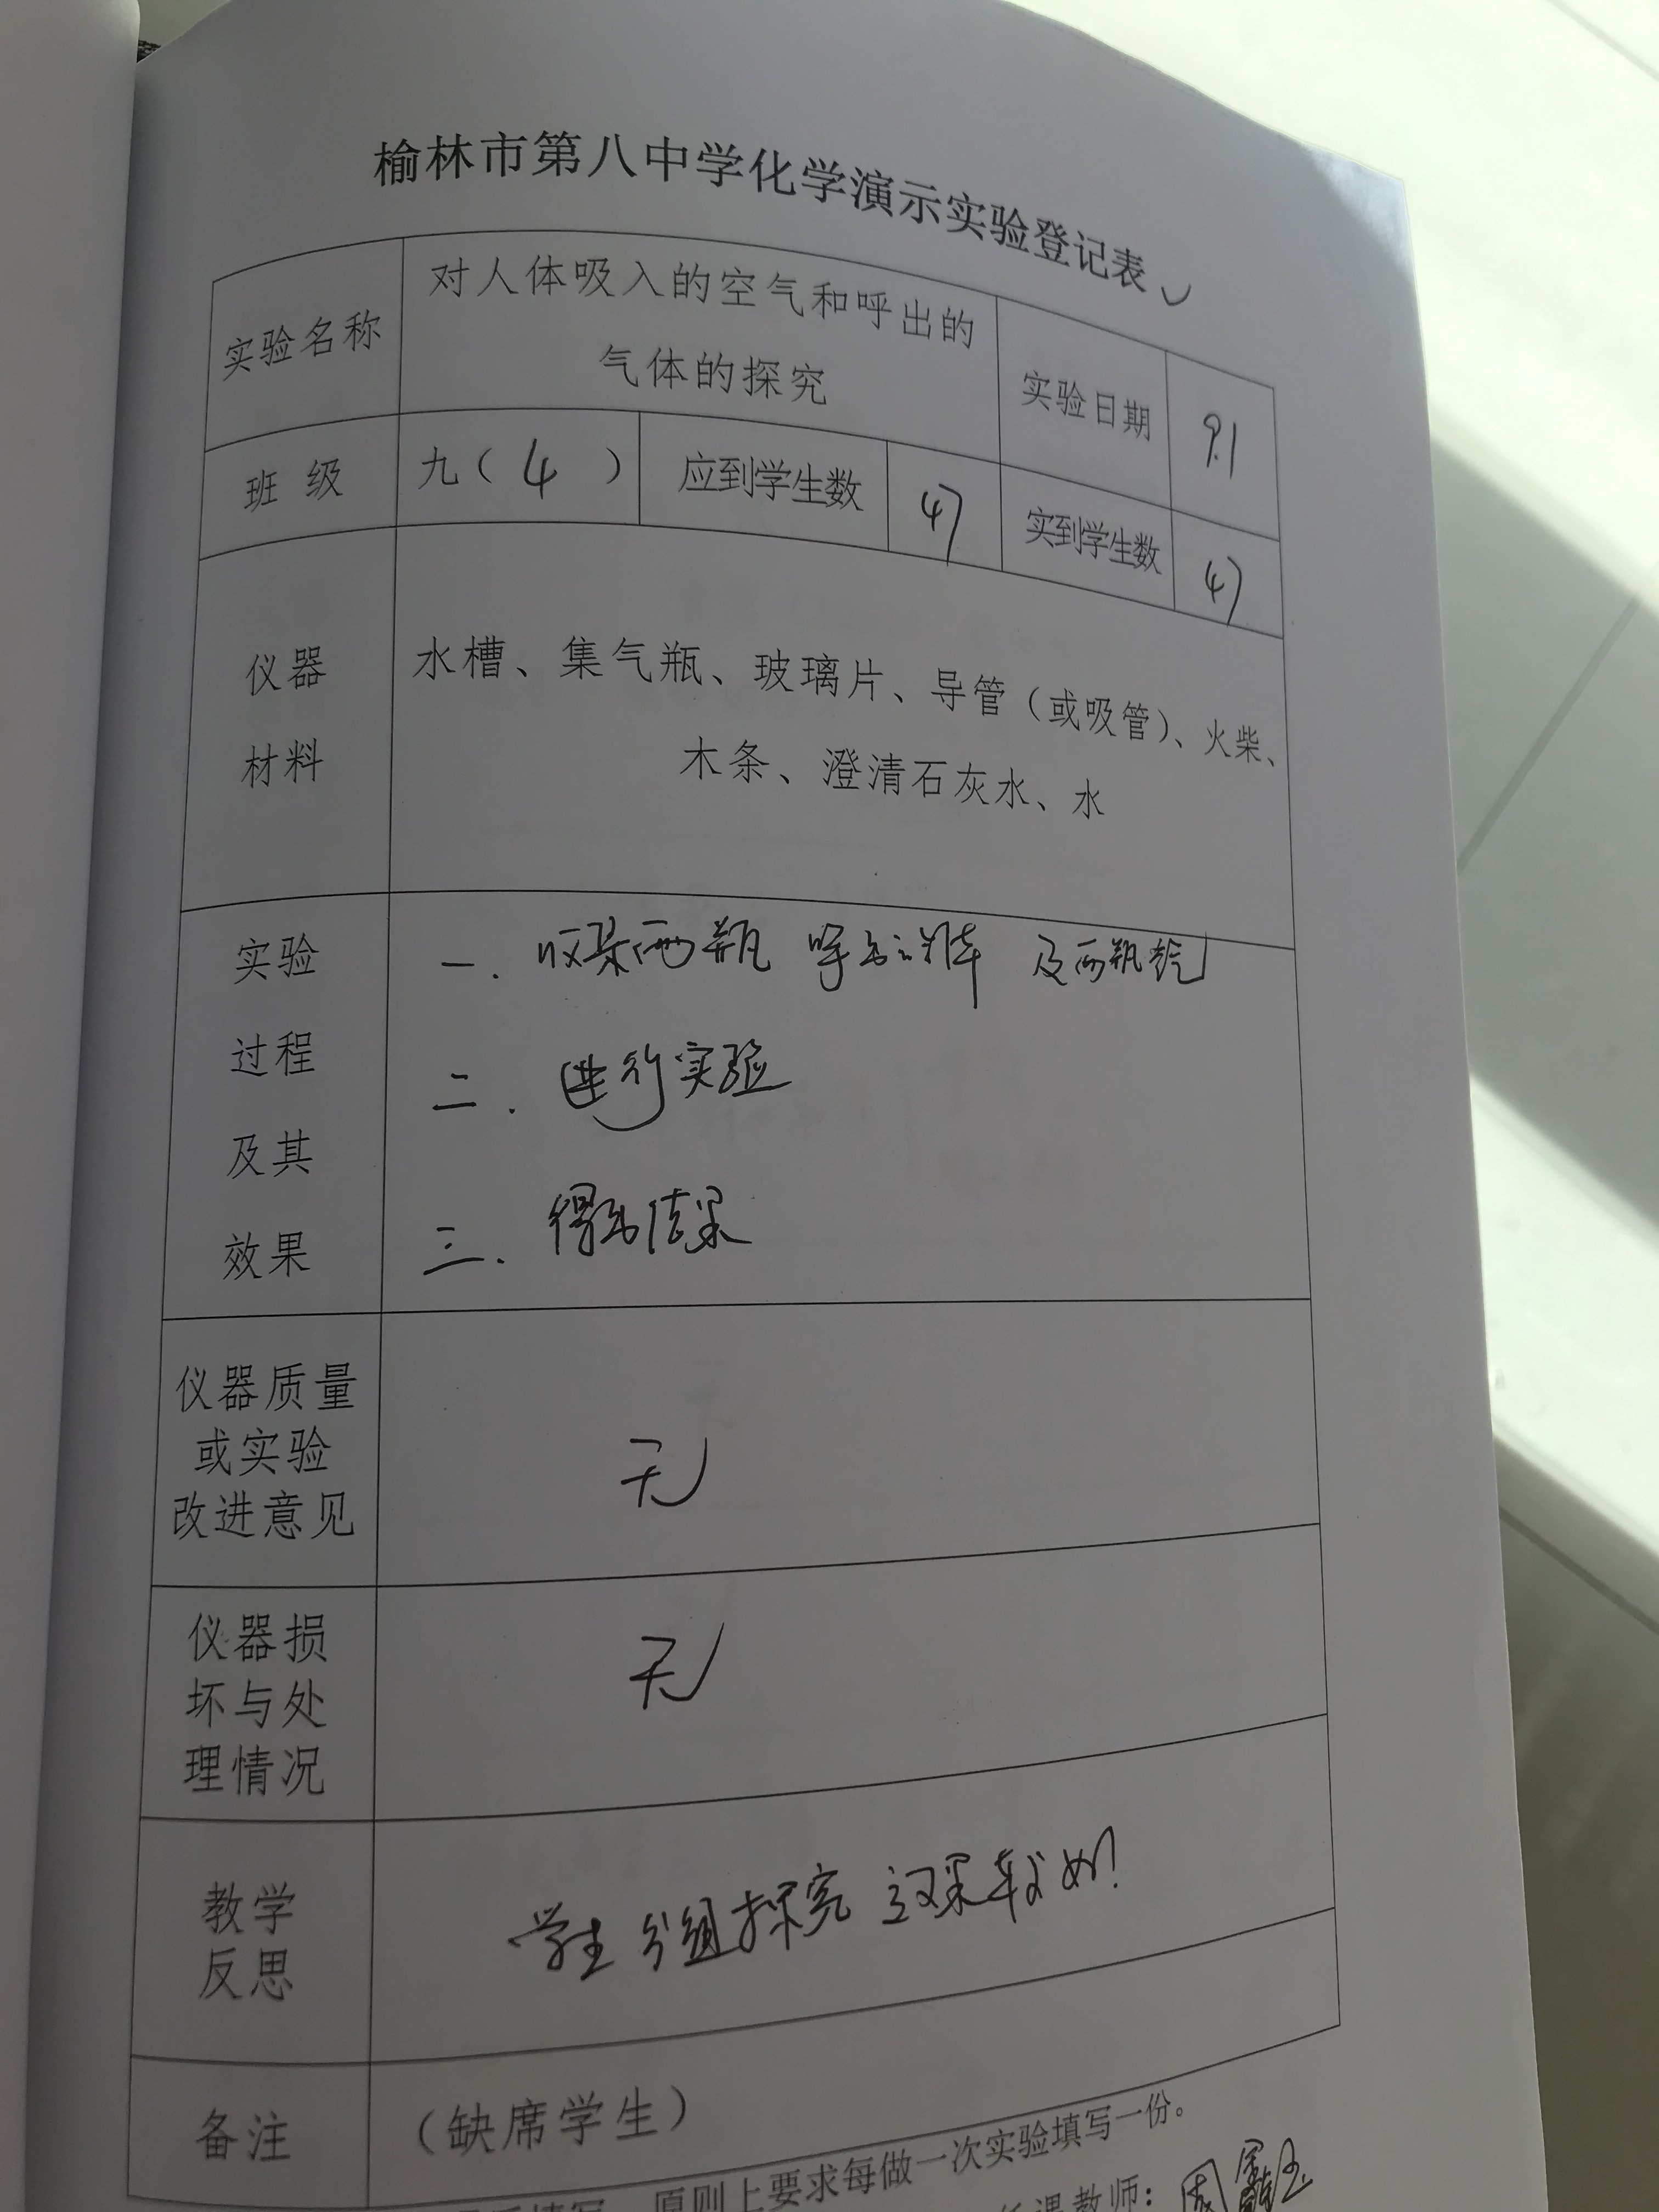 榆林市第八中学化学演示实验登记表
实验名称
对人体吸入的空气和呼出的
气体的探究
实验日期
9.1
班 级
九（ 4 ）
应到学生数
47
实到学生数
47
仪器
材料
水槽、集气瓶、玻璃片、导管（或吸管）、火柴、
木条、澄清石灰水、水
实验
过程
及其
效果
一. 收集两瓶 呼出气体 及两瓶空气
二. 进行实验
三. 得出结果
仪器质量
或实验
改进意见
无
仪器损
坏与处
理情况
无
教学
反思
学生分组探究 效果较好!
备注
（缺席学生）
原则上要求每做一次实验填写一份。
任课教师：周